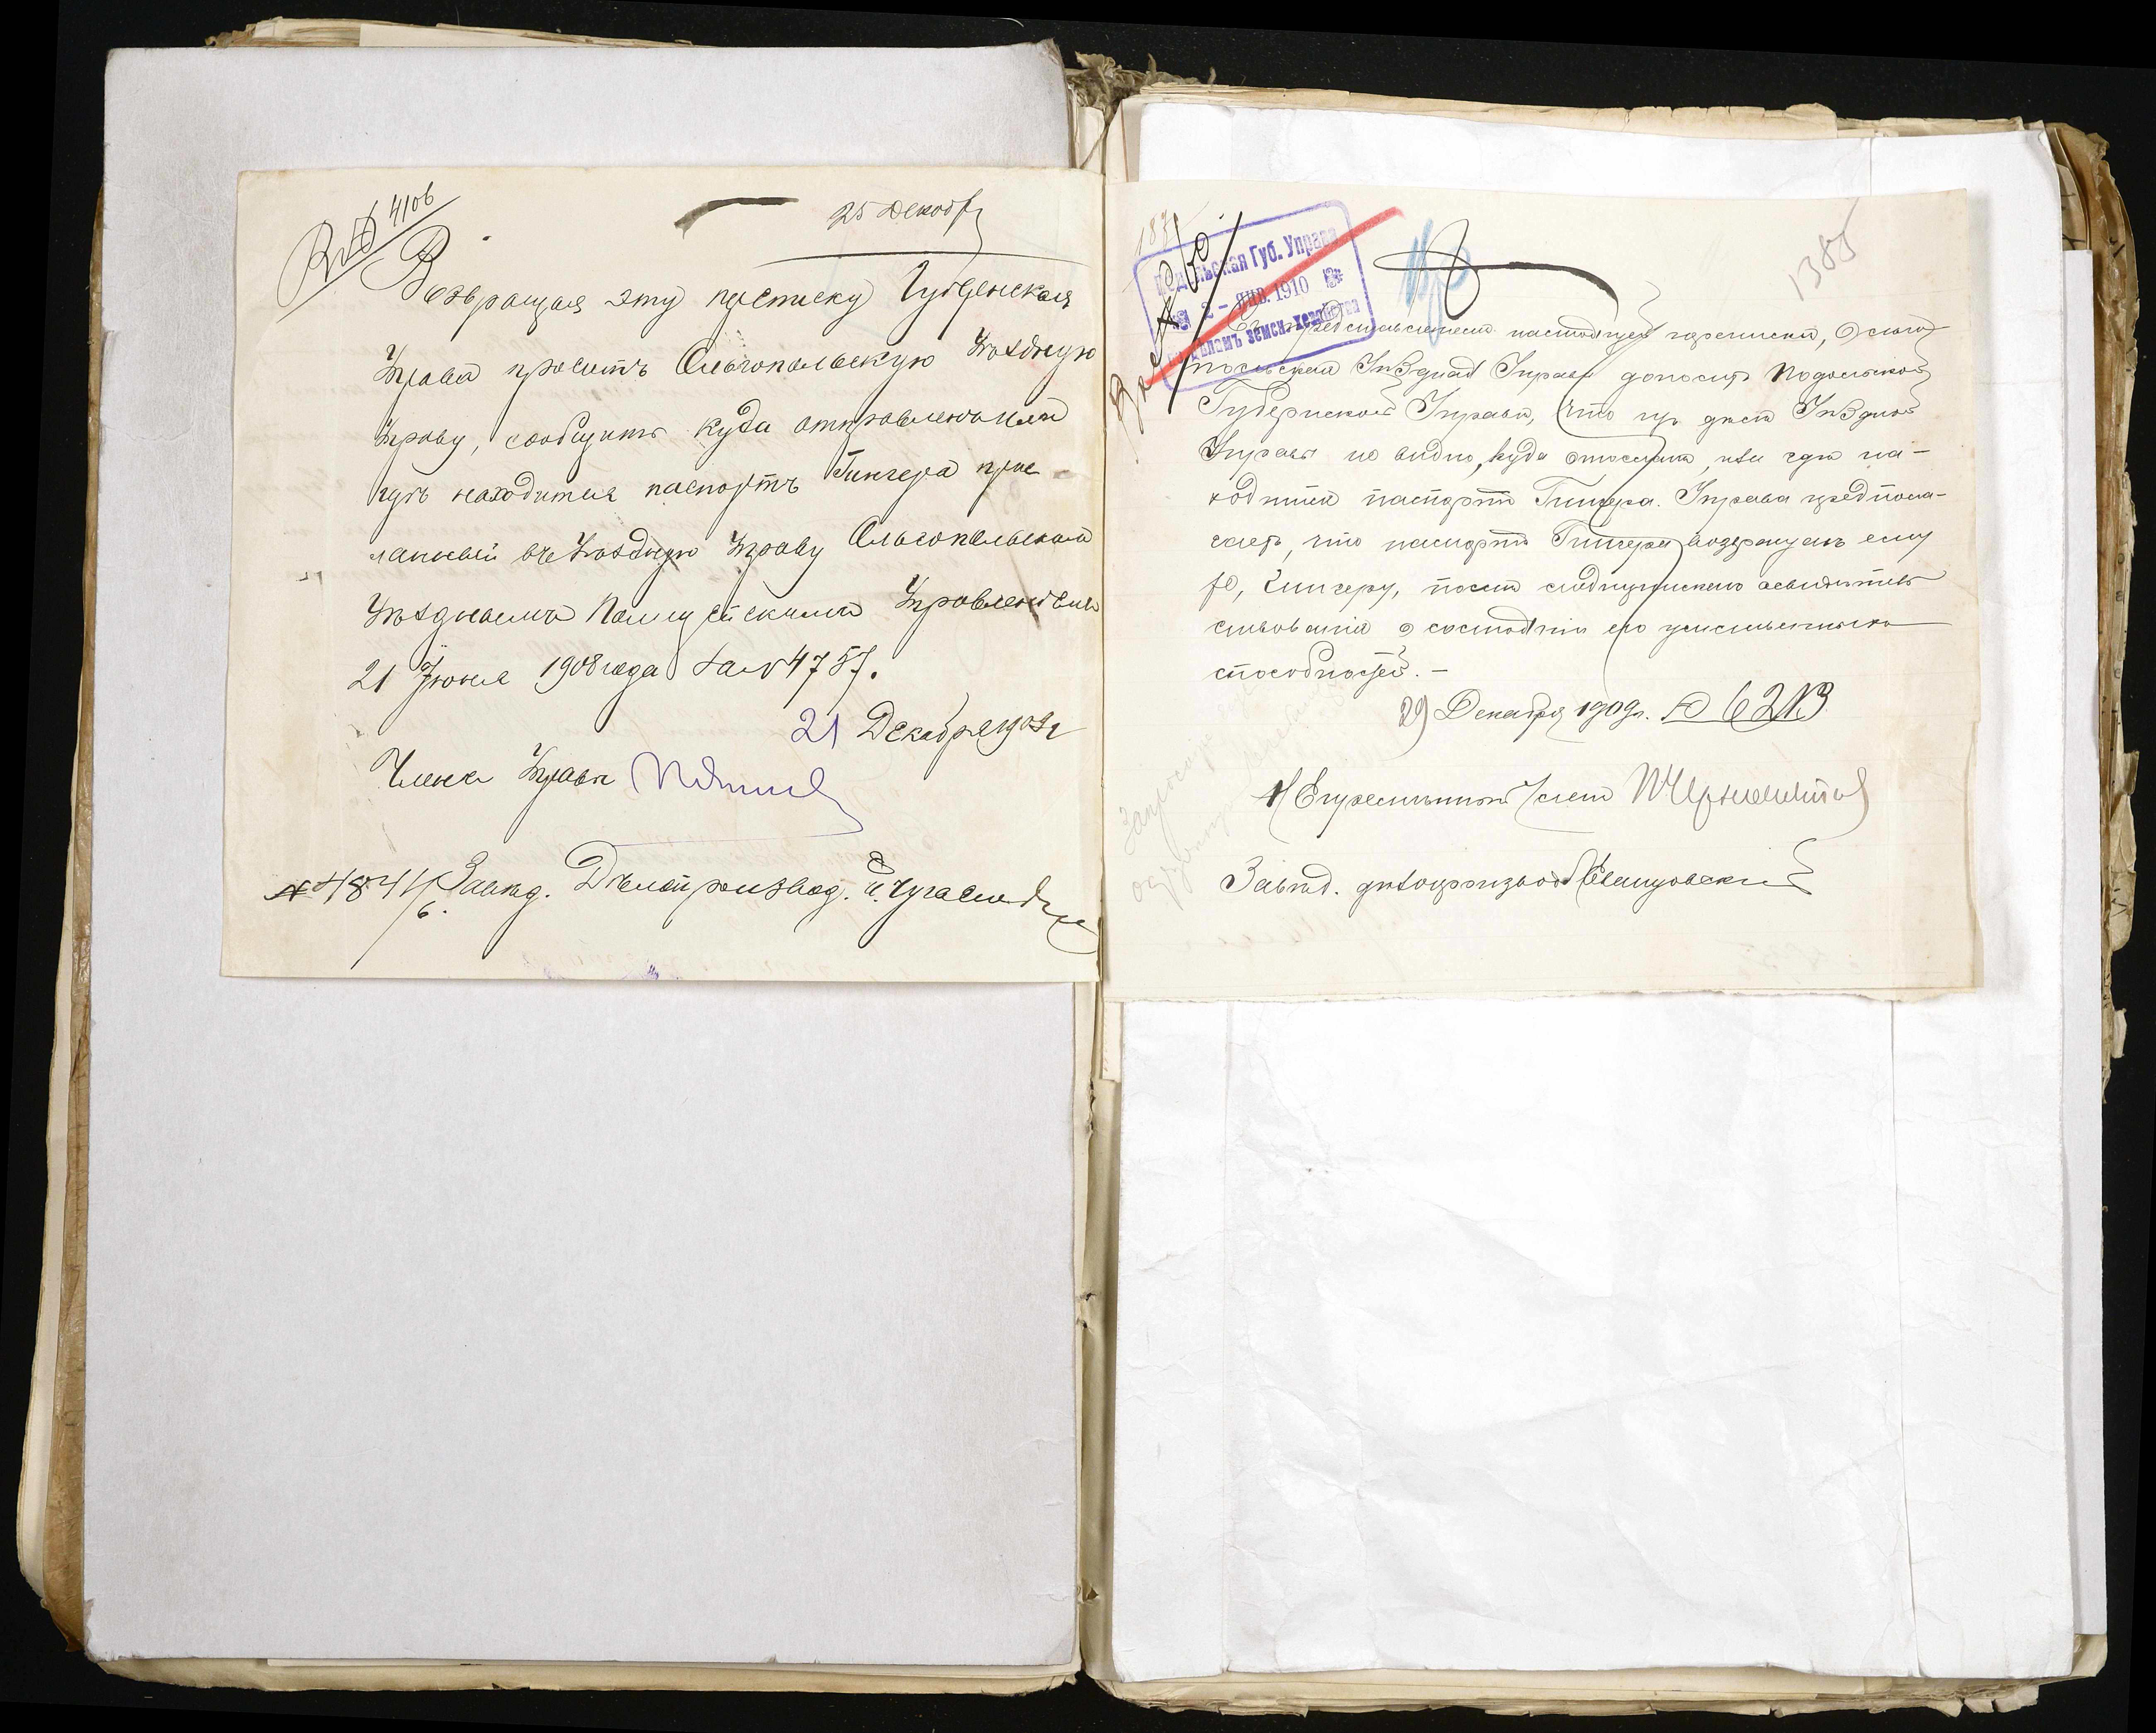 4106
25 Декабр
Возвращая эту переписку Губернская
Управа проситъ Ольгопольскую Уѣздную
Управу, сообщить куда отправленъ или
гдѣ находится паспортъ Гингера прис
ланный въ Уѣздную Управу Ольгопольскимъ
Уѣзднымъ Полицейскимъ Управленіемъ
21 Іюня 1908 года за № 4757.
21 Декабря 1909 г
Членъ Управы
№ 4841/6. Завѣд. Дѣлопроизвод.
1385
Подольская Губ. Управа
2 – ЯНВ. 1910
отдѣломъ земск. хозяйства
Съ представленіемъ настоящей переписки, Ольго-
польская Уѣздная Управа доноситъ Подольской
Губернской Управѣ, что изъ дѣлъ Уѣздной
Управы не видно, куда отосланъ, или гдѣ на-
ходится паспортъ Гингера. Управа предпола-
гаетъ, что паспортъ Гингера возвращенъ ему
же, Гингеру, послѣ освидѣтель
ствованія о состояніи его умственныхъ
способностей. –
29 Декабря 1909 г. № 6213
Членъ
Завѣд. дѣлопроизвод